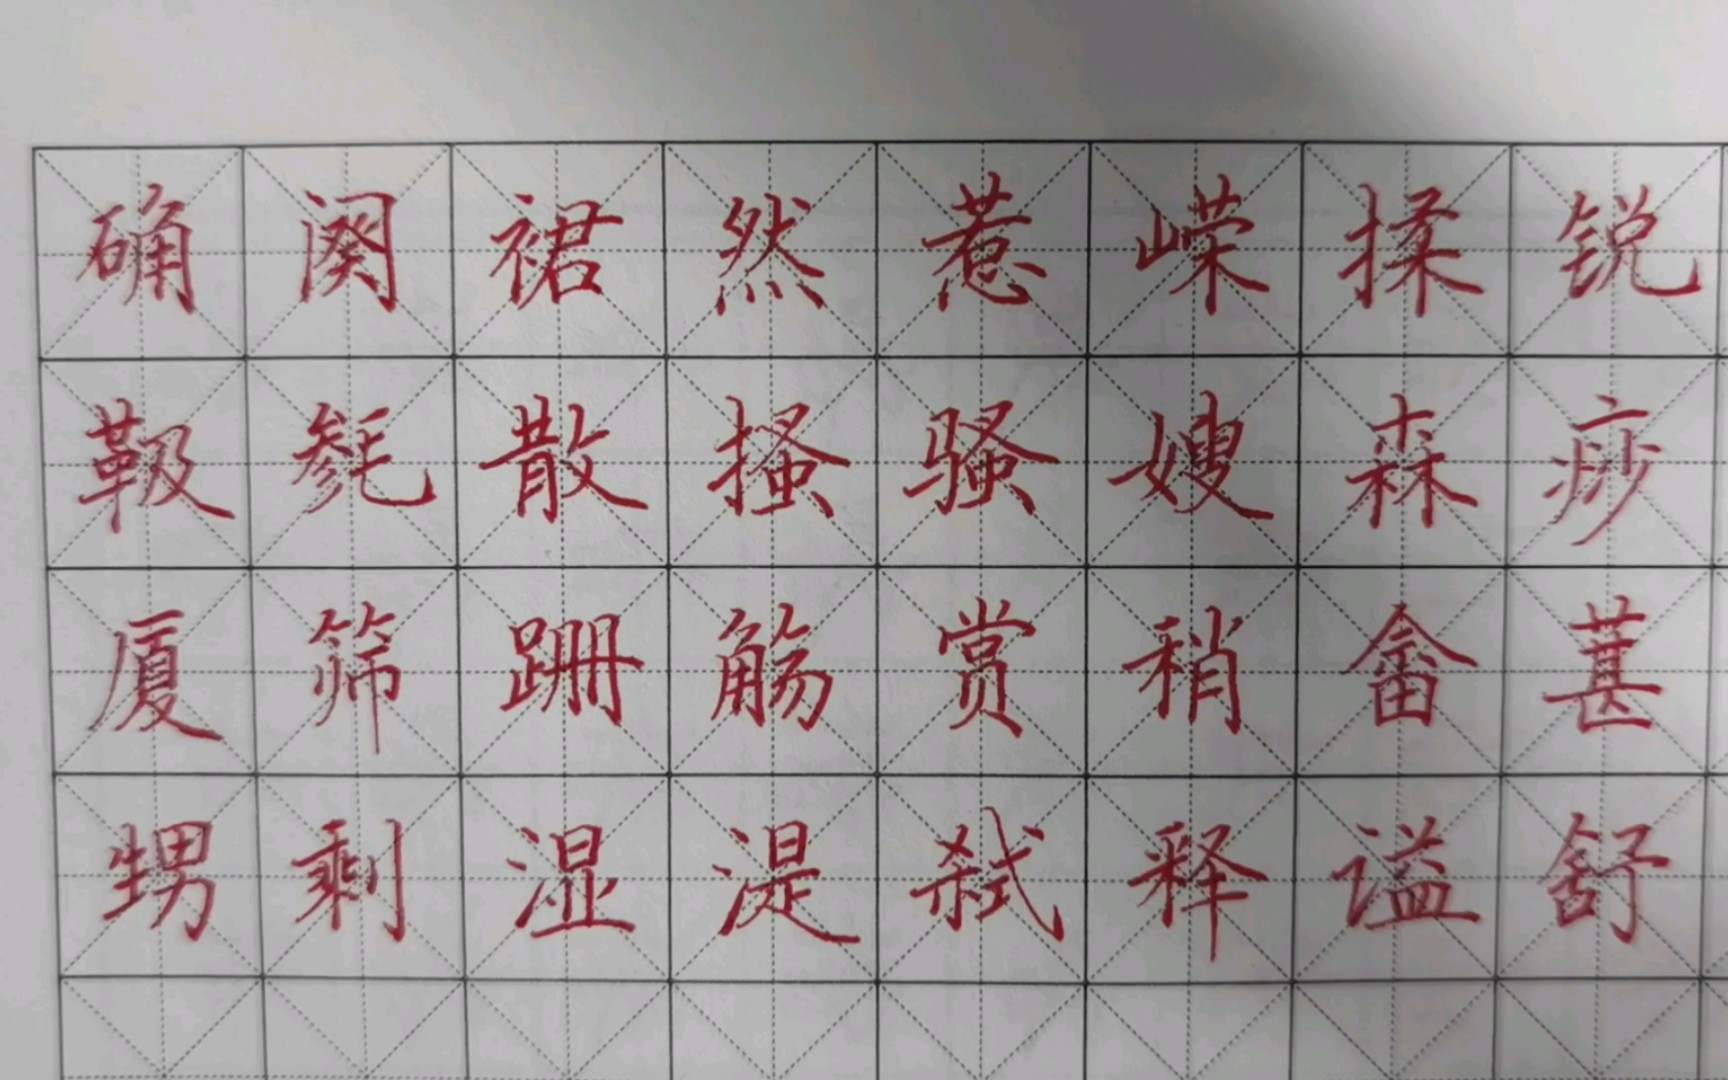 确阕裙然惹嵘揉锐
靸毵散搔骚嫂森痧
厦筛跚觞赏稍畲葚
甥剩湿湜弑释谥舒